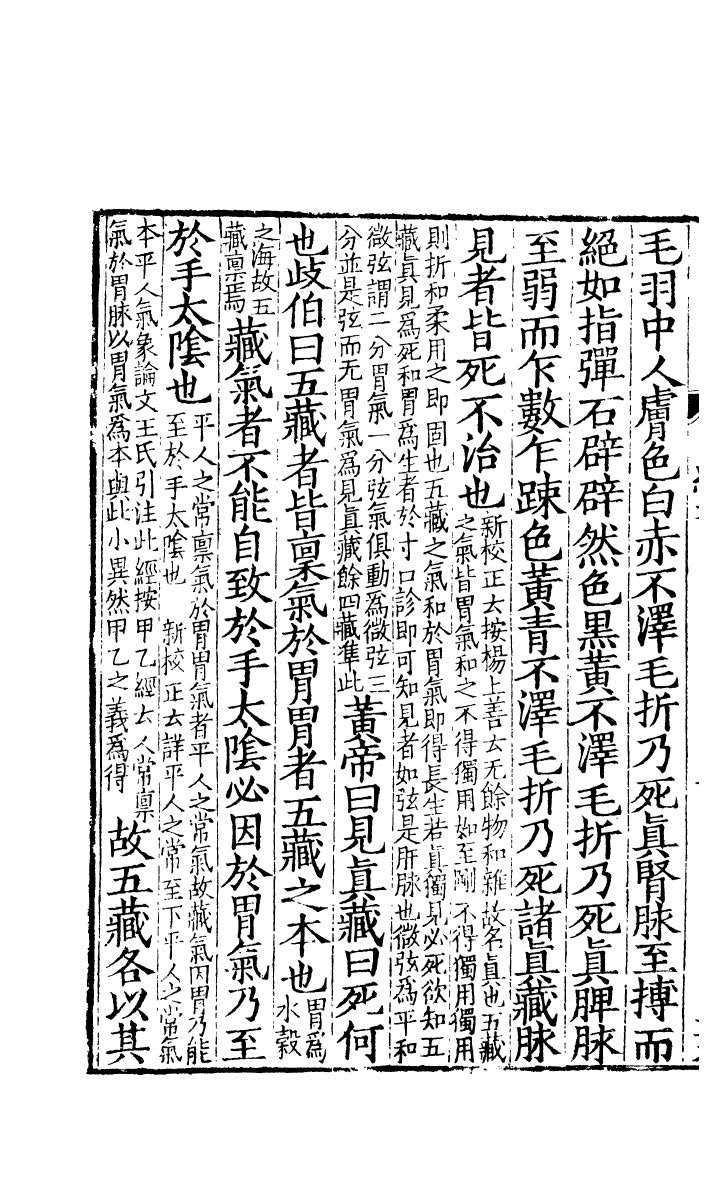 毛羽中人膚色白赤不澤毛折乃死眞腎脉至搏而
絕如指彈石辟辟然色黑黃不澤毛折乃死眞脾脉
至弱而乍數乍踈色黃青不澤毛折乃死諸眞藏脉
見者皆死不治也
新校正云按楊上善云无餘物和雜故名眞也五藏
之氣皆胃氣和之不得獨用如至剛不得獨用獨用
則折和柔用之即固也五藏之氣和於胃氣即得長生若眞獨見必死欲知五
藏眞見爲死和胃爲生者於寸口診即可知見者如弦是肝脉也微弦爲平和
微弦謂二分胃氣一分弦氣俱動爲微弦三
分並是弦而无胃氣爲見眞藏餘四藏準此
黃帝曰見眞藏曰死何
也歧伯曰五藏者皆稟氣於胃胃者五藏之本也
胃爲
水穀
之海故五
藏稟焉
藏氣者不能自致於手太陰必因於胃氣乃至
於手太陰也
平人之常稟氣於胃胃氣者平人之常氣故藏氣因胃乃能
至於手太陰也 新校正云詳平人之常至下平人之常氣
本平人氣象論文王氏引注此經按甲乙經云人常稟
氣於胃脉以胃氣爲本與此小異然甲乙之義爲得
故五藏各以其